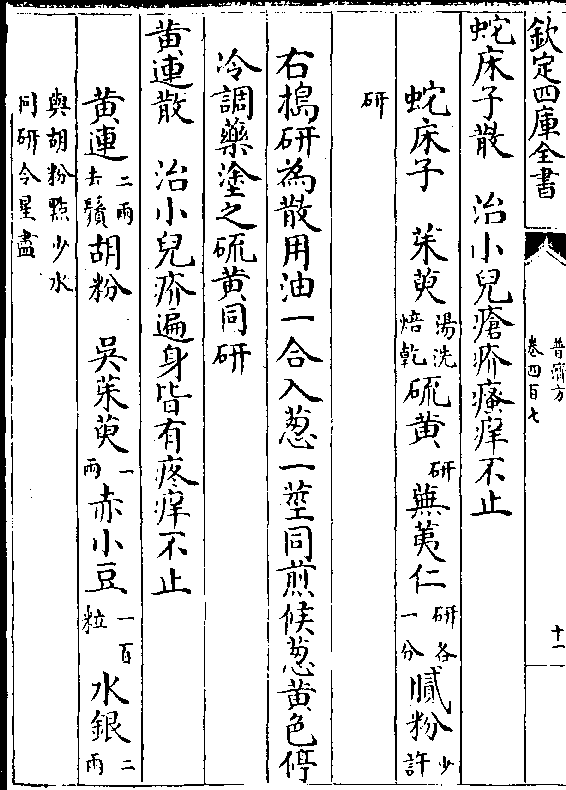 欽定四庫全書
普濟方
卷四百七
十一
蛇床子散　治小兒瘡疥瘙痒不止
蛇床子　茱萸湯洗焙乾硫黄研蕪荑仁研各一分膩粉少許
研
右搗研為散用油一合入葱一莖同煎候葱黄色停
冷調藥塗之硫黄同研
黄連散　治小兒疥遍身皆有疼痒不止
黄連二兩去鬚胡粉　吳茱萸一兩赤小豆一百粒　水銀二兩
與胡粉點少水同研令星盡